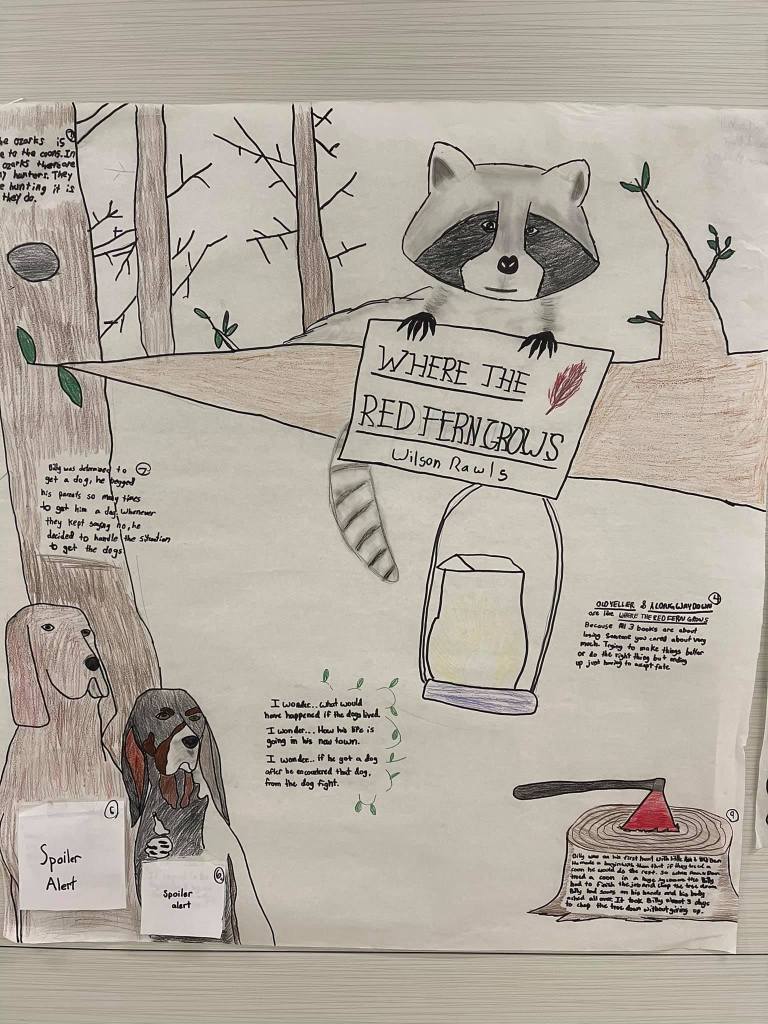 he ozarks is ③
e to the coons. In
ozarks there are
ny hunters. They
e hunting it is
they do.
WHERE THE
RED FERN GROWS
Wilson Rawls
Billy was determined to ⑦
get a dog, he begged
his parents so many times
to get him a dog. Whenever
they kept saying no, he
decided to handle the situation
to get the dogs
OLD YELLER & A LONG WAY DOWN ④
are like WHERE THE RED FERN GROWS
Because All 3 books are about
losing someone you cared about very
much. Trying to make things better
or do the right thing but ending
up just having to adapt fate
I wonder... what would
have happened if the dogs lived.
I wonder... How his life is
going in his new town.
I wonder... if he got a dog
after he encountered that dog,
from the dog fight.
⑥
Spoiler
Alert
Spoiler
alert
⑨
Billy was on his first hunt with little Ann & Old Dan
He made a bargain with them that if they treed a
coon he would do the rest. So when
treed a coon in a huge sycamore tree Billy
had to finish the job and chop the tree down
Billy had sores on his hands and his body
ached all over. It took Billy about 3 days
to chop the tree down without giving up.